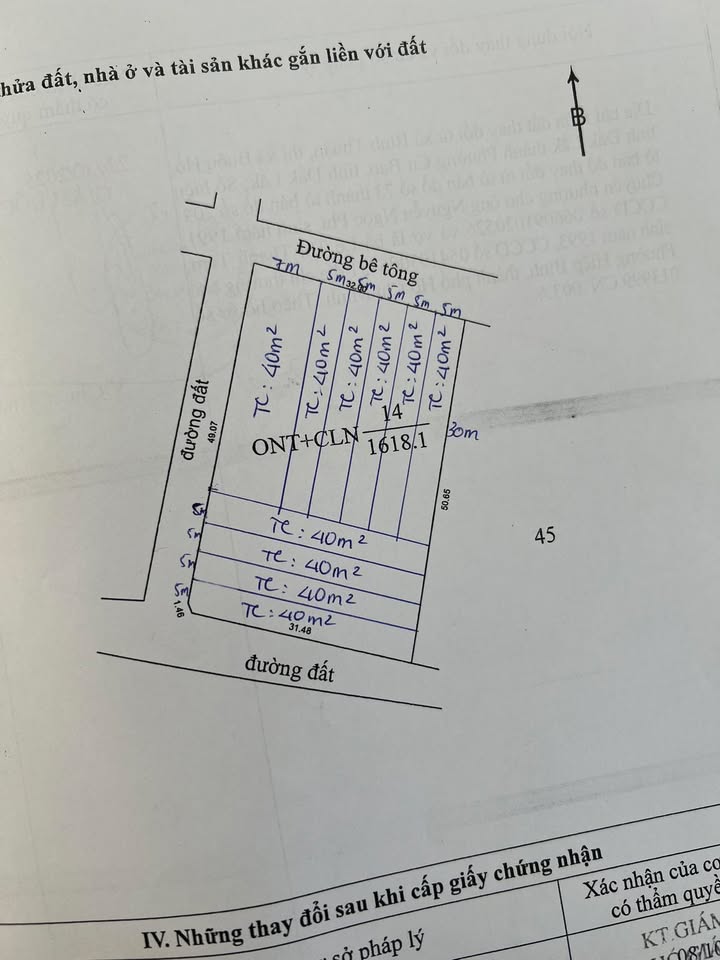 hửa đất, nhà ở và tài sản khác gắn liền với đất
B
Đường bê tông
7m 5m 5m 5m 5m 5m
32.00
TC: 40m² TC: 40m² TC: 40m² TC: 40m² TC: 40m² TC: 40m²
đường đất
49.07
ONT+CLN 14
1618.1
30m
50.65
45
5m
5m
5m
1.46
TC: 40m²
TC: 40m²
TC: 40m²
TC: 40m²
31.48
đường đất
IV. Những thay đổi sau khi cấp giấy chứng nhận
sở pháp lý
Xác nhận của cơ
có thẩm quyề
KT.GIÁM